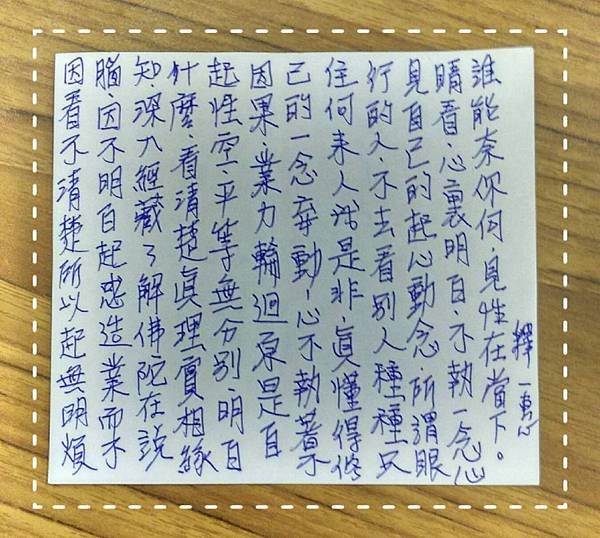 因看不清楚所以起無明煩
腦因不明白起惑造業而不
知深入經藏了解佛陀在說
什麼、看清楚真理實相緣
起性空、平等無分別、明白
因果、業力輪迴原是自
己的一念妄動、心不執著不
住何來人我是非、真懂得修
行的人、不去看別人種種只
見自己的起心動念、所謂眼
睛看、心裏明白、不執一念心
誰能奈你何、見性在當下。
釋一